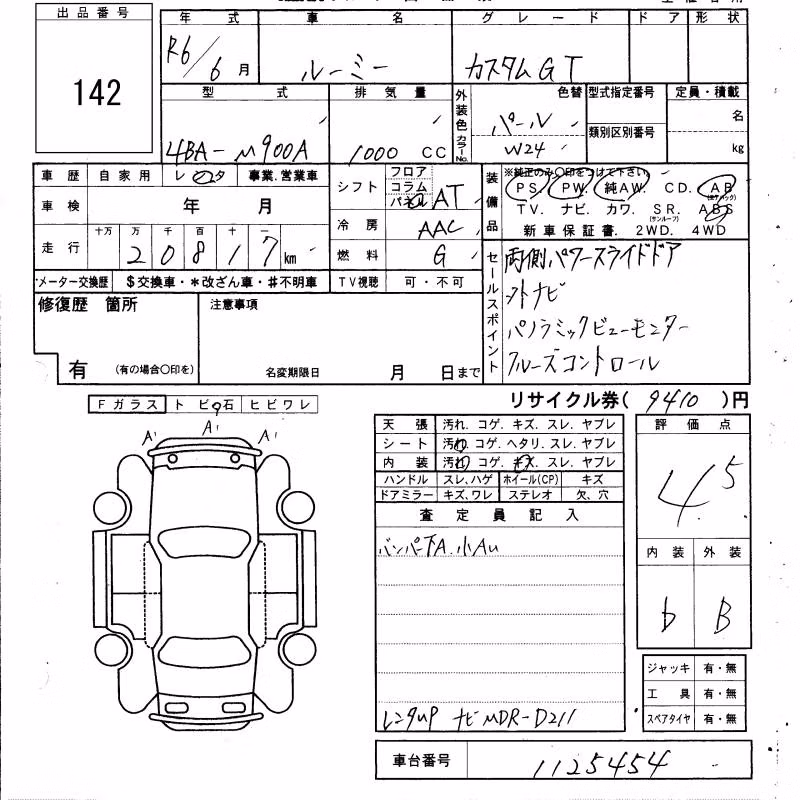 出品番号
142
年式 車名 グレード ドア 形状
R6/6月 ルーミー カスタムGT
型式 排気量 外装色 カラーNo. 色替 型式指定番号 定員・積載
類別区別番号 名
4BA-M900A 1000 CC パール W24 kg
車歴 自家用 レンタ 事業.営業車
車検 年 月
走行 十万 万 千 百 十 一
20817 km
*メーター交換歴 $交換車・*改ざん車・#不明車
シフト フロア コラム パネル AT
冷房 AAC
燃料 G
TV視聴 可・不可
装備品 ※純正のみ〇印をつけて下さい
PS. PW. 純AW. CD. AB
TV. ナビ. カワ. SR. ABS
(サンルーフ)
新車保証書. 2WD. 4WD
セールスポイント
両側パワースライドドア
外ナビ
パノラミックビューモニター
クルーズコントロール
修復歴 箇所
有 (有の場合〇印を)
注意事項
名変期限日 月 日まで
リサイクル券( 9410 )円
Fガラス トビ石 ヒビワレ
A' A' A'
天張 汚れ. コゲ. キズ. スレ. ヤブレ
シート 汚れ. コゲ. ヘタリ. スレ. ヤブレ
内装 汚れ. コゲ. キズ. スレ. ヤブレ
ハンドル スレ、ハゲ ホイール(CP) キズ
ドアミラー キズ、ワレ ステレオ 欠、穴
査定員記入
バンパー下A 小AU
レンタup ナビMDR-D211
評価点
4.5
内装 外装
b B
ジャッキ 有・無
工具 有・無
スペアタイヤ 有・無
車台番号 1125454